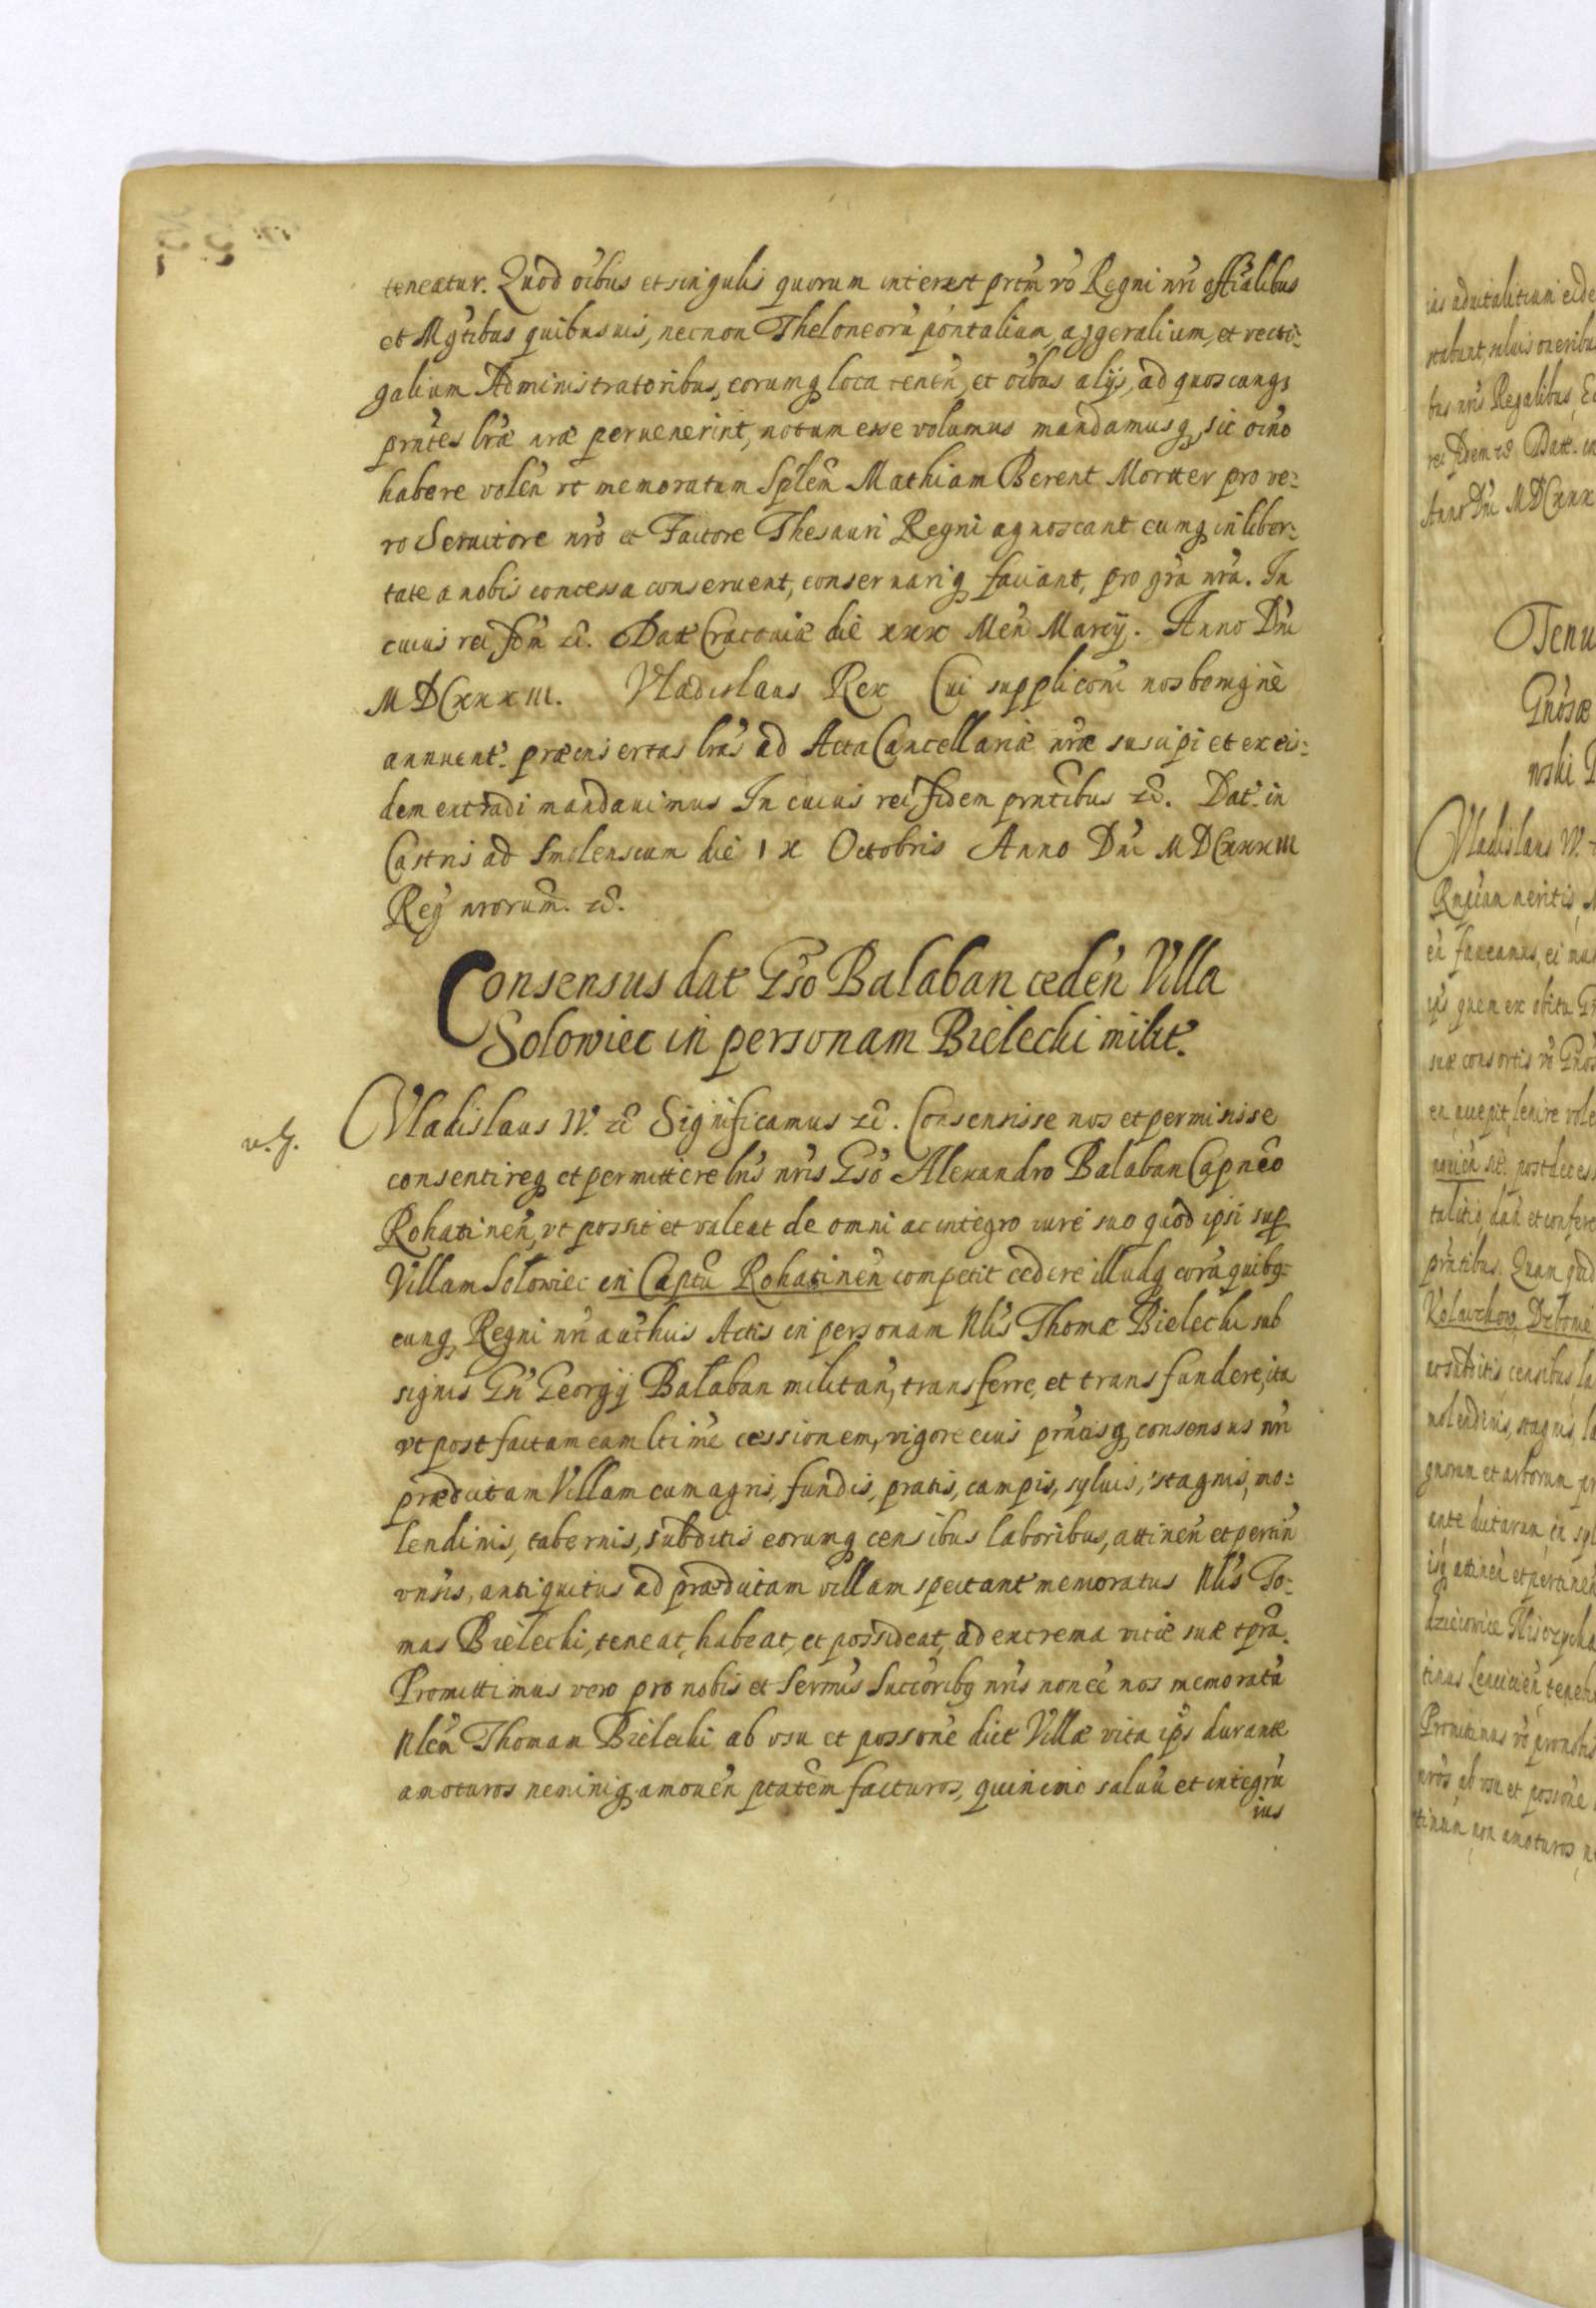 teneatur. Quod oibus et singulis quorum interest prtm vo Regni nri offialibus
et Mgtibus quibusuis, necnon Theloneoru pontalium, aggeralium, et vecti-
galium Administratoribus, eorumq loca tenen, et oibus alijs, ad quoscunq
prntes lræ nræ peruenerint, notum esse volumus mandamusq, sic oino
habere volen vt memoratum Splem Mathiam Berent Mortter pro ve-
ro Seruitore nro et Factore Thesauri Regni agnoscant eumq in liber-
tate a nobis concessa conseruent, conseruariq faciant, pro gra nra. In
cuius rei fdm &. Dat Cracouiæ die xxx Men Marcij. Anno Dni
MDCxxxiii. Vladislaus Rex Cui suppliconi nos benignè
annuent. præinsertas lras ad Acta Cancellariæ nræ suscipi et ex eis-
dem extradi mandauimus In cuius rei fidem prntibus &. Dat. in
Castris ad Smolenscum die ix Octobris Anno Dni MDCxxxiii
Reg nrorum. &.
Consensus dat Gso Balaban ceden Villa
Solowiec in personam Bielecki milit.
u. g. Vladislaus IV. & Significamus &. Consensisse nos et permisisse
consentireq et permittere lris nris Gso Alexandro Balaban Capneo
Rohatinen, vt possit et valeat de omni ac integro iure suo quod ipsi sup
Villam Solowiec in Captu Rohatinen competit cedere illudq cora quibq-
cunq Regni nri authuis Actis in personam Nlis Thomæ Bielecki sub
signis Gn Georgij Balaban militan, transferre, et transfundere, ita
vt post factam eam ltime cessionem, vigore eius prntisq consensus nri
prædictam Villam cum agris, fundis, pratis, campis, syluis, stagnis, mo-
lendinis, tabernis, subditis eorumq censibus laboribus, attinen et pertin
vnsis, antiquitus ad prædictam villam spectant memoratus Nlis To-
mas Bielecki, teneat, habeat, et possideat, ad extrema vitæ suæ tpra.
Promittimus vero pro nobis et Sermis Succoribq nris non ee nos memoratu
Nlem Thomam Bielecki ab vsu et possone dict Villæ vita ips durante
amoturos neminiq amouen ptatem facturos, quinimo saluu et integru
ius